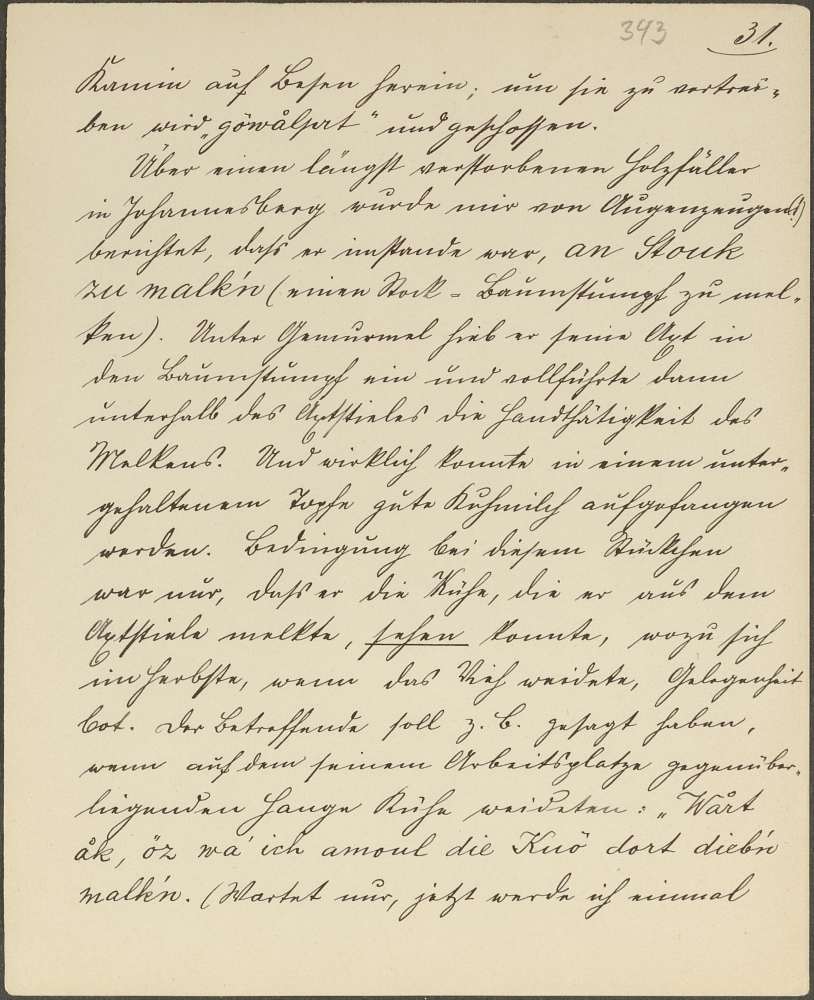 393 31.
Kamin auf Besen herein; um sie zu vertrei-
ben wird „göwålprt“ und geschossen.
Über einen längst verstorbenen Holzfäller
in Johannesberg wurde mir von Augenzeugen(!)
berichtet, dass er imstande war, an Stouk
zu malk'n (einen Stock = Baumstumpf zu mel-
ken). Unter Gemurmel hieb er seine Axt in
den Baumstumpf ein und vollführte dann
unterhalb des Axtstieles die Handthätigkeit des
Melkens. Und wirklich konnte in einem unter-
gehaltenem Topfe gute Kuhmilch aufgefangen
werden. Bedingung bei diesem Stückchen
war nur, dass er die Kühe, die er aus dem
Axtstiele melkte, sehen konnte, wozu sich
im Herbste, wenn das Vieh weidete, Gelegenheit
bot. Der Betreffende soll z. B. gesagt haben,
wenn auf dem seinem Arbeitsplatze gegenüber-
liegenden Hange Kühe weideten: „Wårt
åk, öz wa' ich amoul die Kuö dort dieb'n
malk'n. (Wartet nur, jetzt werde ich einmal